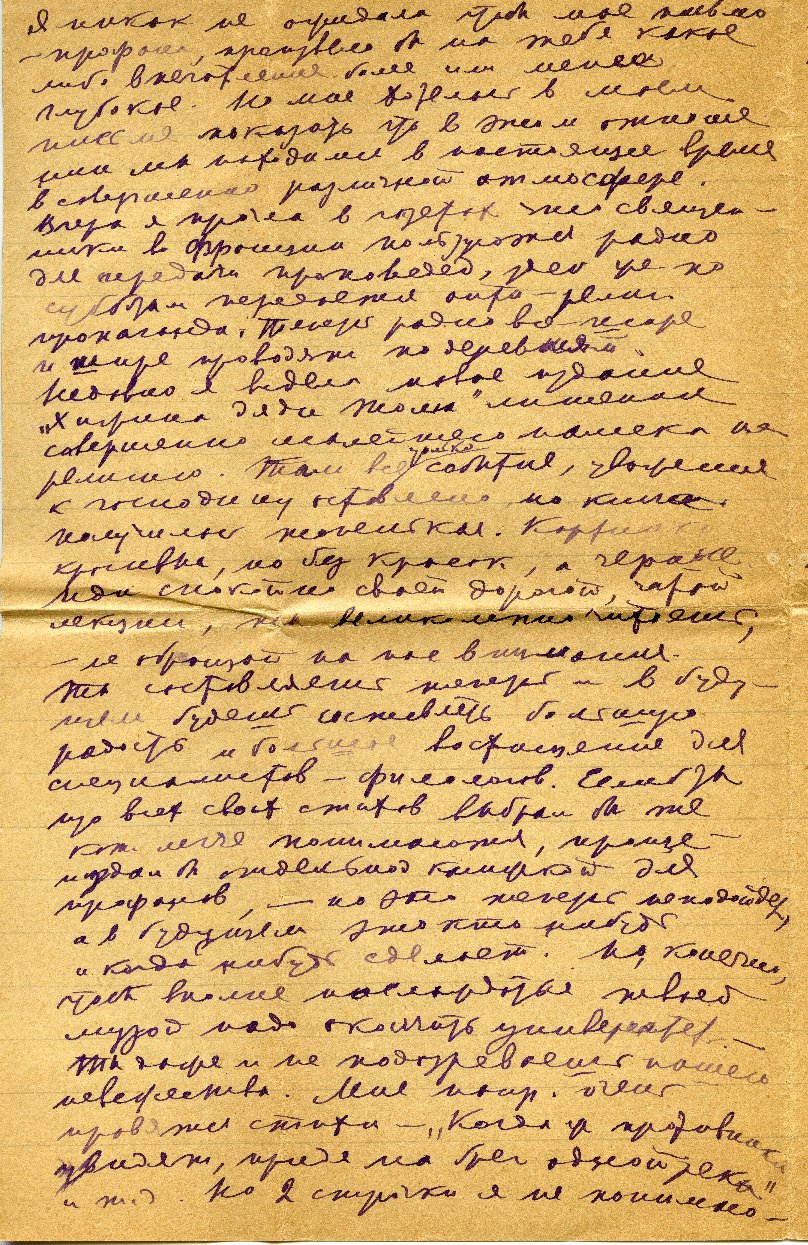 Я никак не ожидала чтоб мое письмо
– профана, произвело бы на тебя какое
либо впечатление более или менее
глубокое. Но мне хотелось в моем
письме показать что в этом отноше
нии мы находимся в настоящее время
в совершенно различной атмосфере.
Вчера я прочла в газетах что священ–
ники в Франции пользуются радио
для передачи проповедей, у нас же по
субботам передается анти-религ.
пропаганда. Теперь радио все шире
и шире проводят по деревням.
Недавно я видела новое издание
„Хижина дяди Тома" лишенная
совершенно малейшего намека на
религию. Там все только события, уважения
к господину оставлено, но книга
получилась тощенькая. Картинки
красивы, но без красок, а
иди спокойно своей дорогой, читай
лекции, ты великолепно читаешь,
– не обращай на нас внимания.
Ты составляешь теперь и в буду–
щем будешь составлять большую
радость и большое восхищение для
специалистов – филологов. Если бы ты
из всех своих стихов выбрал бы те
кот. легче понимаются, и
издал бы отдельной книжкой для
профанов, – но это теперь не подойдет,
а в будущем это кто нибудь
и когда нибудь сделает. Но, конечно,
чтоб вполне насладиться твоей
музой надо окончить университет. –
Ты даже и не подозреваешь нашего
невежества. Мне напр. очень
нравятся стихи – „Когда
увидят, придя на брег одной реки"
и т.д. Но 2 строчки я не понимаю –